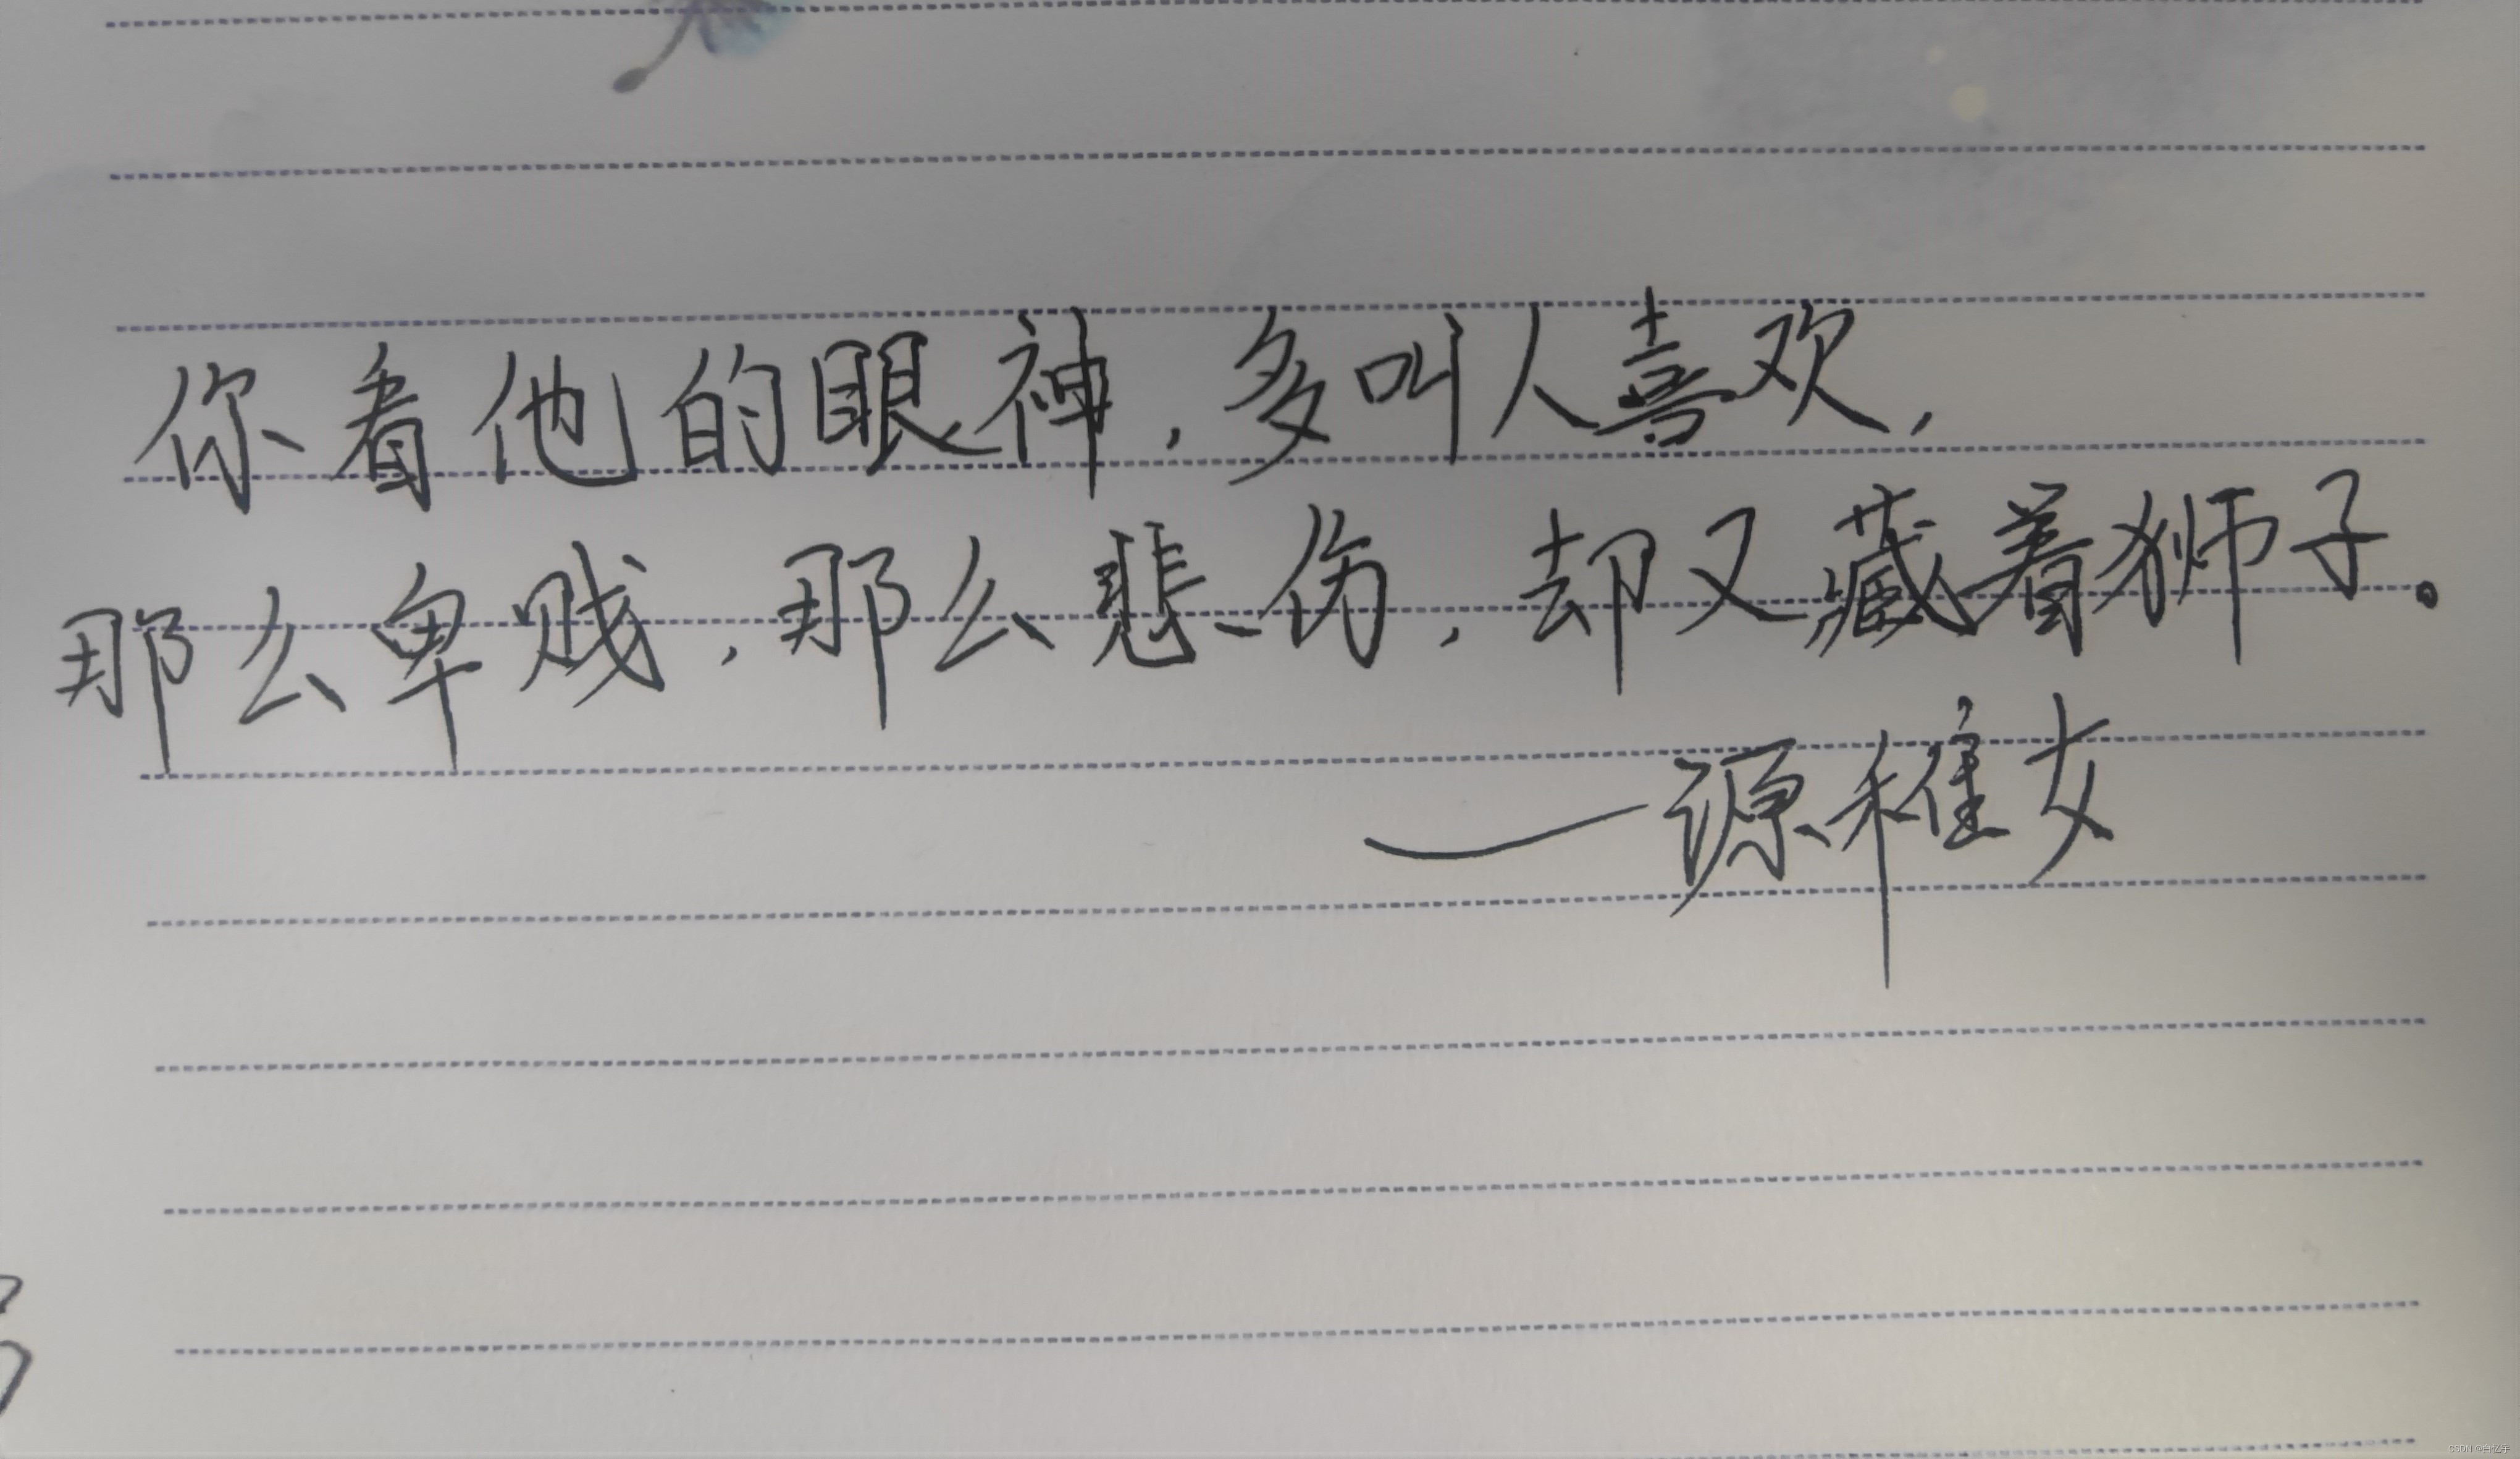 你看他的眼神，多叫人喜欢，
那么卑贱，那么悲伤，却又藏着狮子。
—源稚女
CSDN @白忆宇